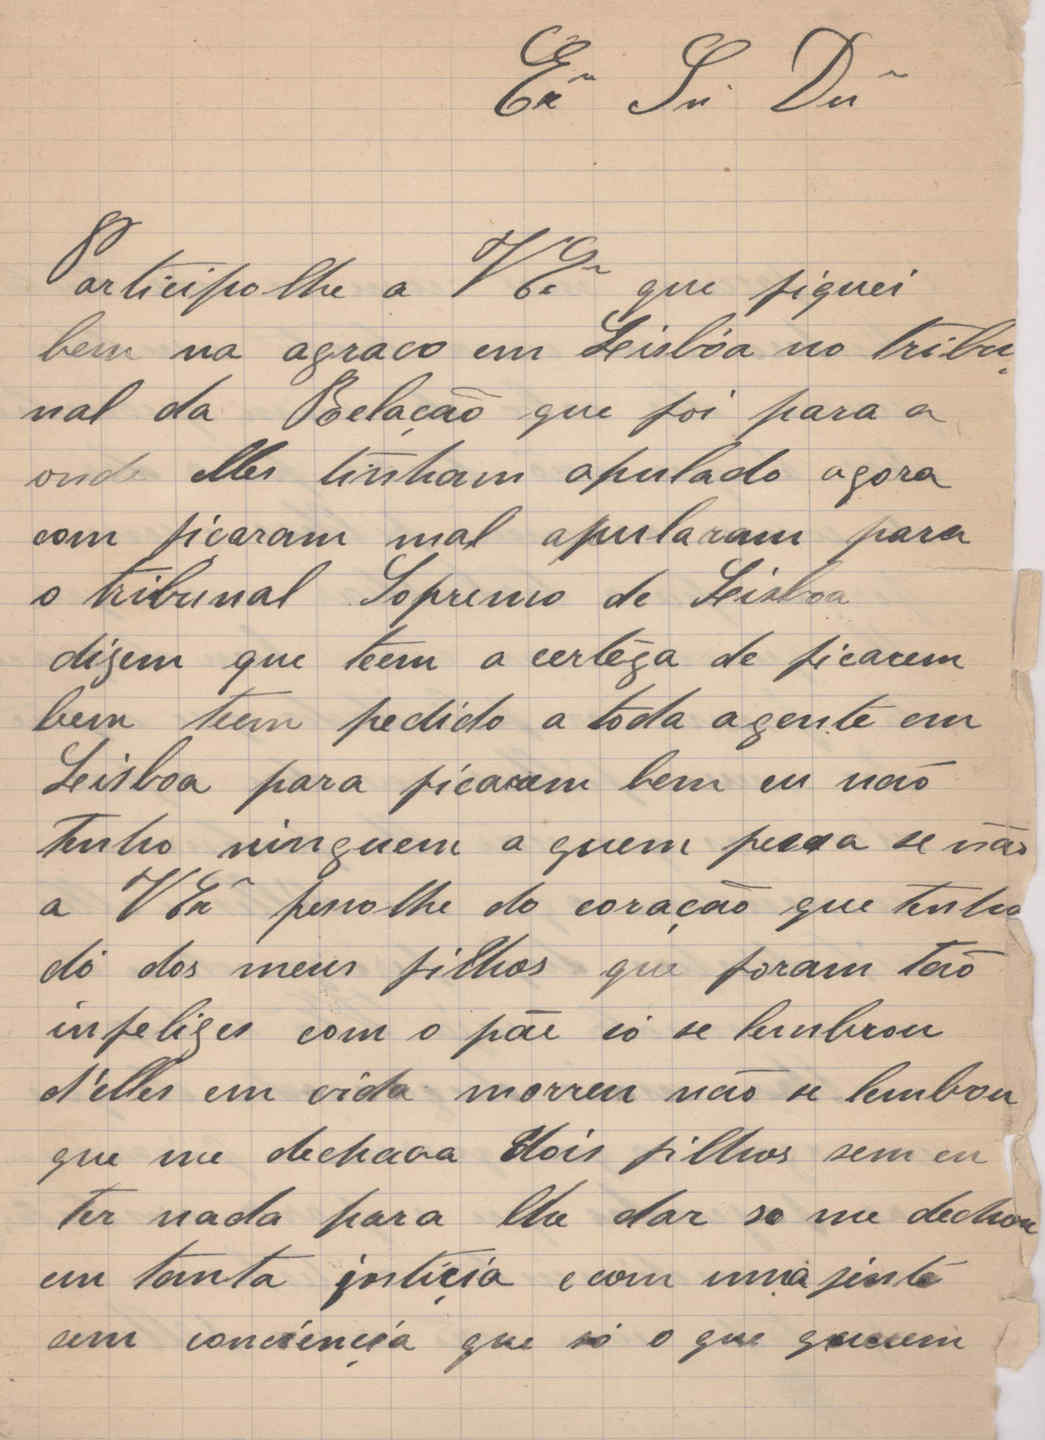 Exª Sr Drª
Participolhe a VExª que fiquei
bem na agraco em Leisbôa no tribu,
nal da Relação que foi para a
onde elles tinham apulado agora
com ficaram mal apularam para
o tribunal Sopremo de Leisboa
dizem que teem a certêza de ficarem
bem teem pedido a toda a gente em
Leisboa para ficarem bem eu não
tenho ninguem a quem pessa se não
a VExª pessolhe do coração que tenho
dó dos meus filhos que foram tão
infelizes com o pãe só se lembrou
d'elles em vida morreu não se lembou
que me dechava dois filhos sem eu
ter nada para lhe dar so me dechou
em tanta justiçia e com uma jente
sem conciençia que só o que querem